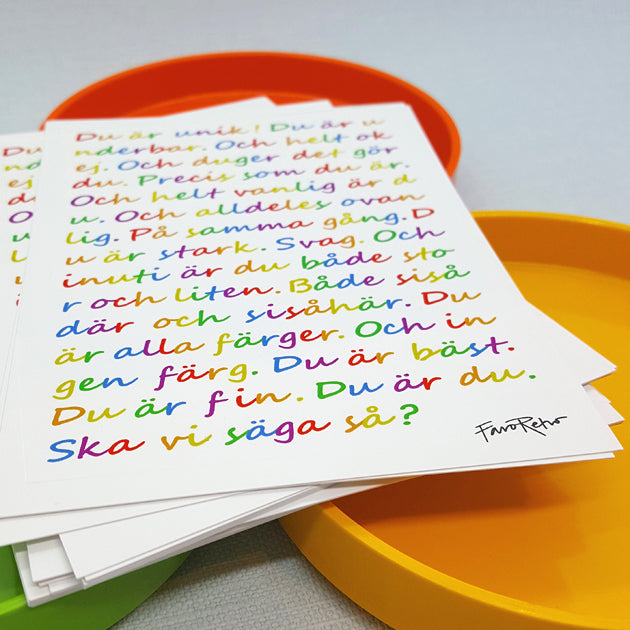 Du är unik! Du är u
nderbar. Och helt ok
ej. Och duger det gör
du. Precis som du är.
Och helt vanlig är d
u. Och alldeles ovan
lig. På samma gång. D
u är stark. Svag. Och
inuti är du både sto
r och liten. Både siså
där och sisåhär. Du
är alla färger. Och in
gen färg. Du är bäst.
Du är fin. Du är du.
Ska vi säga så?
FavoRetro
Du
nd
ej
du
O
u
li
u
in